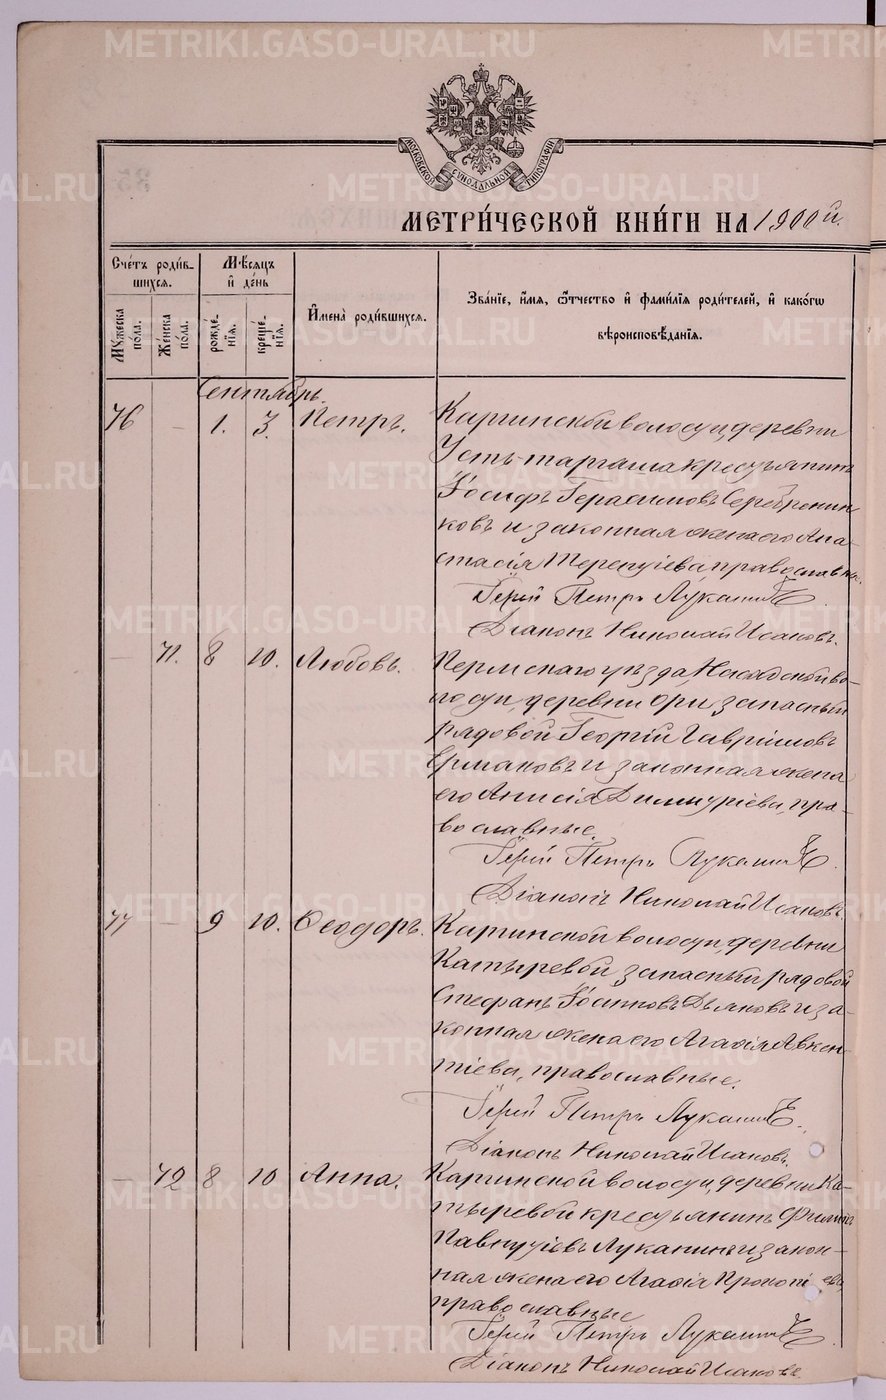 METRIKI.GASO-URAL.RU
МОСКОВСКОЙ СѴНОДАЛЬНОЙ ТИПОГРАФІИ
МЕТРИ́ЧЕСКОЙ КНИ́ГИ НА 1900 й.
Сче́тъ роди́вшихся.
Мѣ́сяцъ и́ де́нь
И҆мена̀ роди́вшихся.
Зва́нїе, и҆́мя, ѻ҆́тчество и҆ фами́лїя роди́телей, и҆ како́гѡ вѣроисповѣ́данїя.
Мꙋ́жеска по́ла.
Же́нска по́ла.
рожде́нїя.
креще́нїя.
Сентябрь.
76 — 1. 3. Петръ. Каргинской волости, деревни
Усть-таргаша крестьянинъ
Іосифъ Герасимовъ Серебренни-
ковъ и законная жена его Ана-
стасія Терентіева, православн.
Іерей Петръ Луканинъ
Діаконъ Николай Исаковъ.
— 71. 8 10. Любовь. Пермскаго уѣзда Насадской во-
лости, деревни запасный
рядовой Георгій Гавріиловъ
Ермаковъ и законная жена
его Анисія Димитріева, пра-
вославные.
Іерей Петръ Луканинъ
Діаконъ Николай Исаковъ.
77 — 9 10. Ѳеодоръ. Каргинской волости, деревни
Катыревой запасный рядовой
Стефанъ Іоанновъ Дьяковъ и за-
конная жена его Агафія Авксен-
тіева, православные.
Іерей Петръ Луканинъ
Діаконъ Николай Исаковъ.
— 72 8 10 Анна. Каргинской волости, деревни Ка-
тыревой крестьянинъ Филиппъ
Павнутіевъ Луканинъ и закон-
ная жена его Агафія Прокопіева,
православные
Іерей Петръ Луканинъ
Діаконъ Николай Исаковъ.